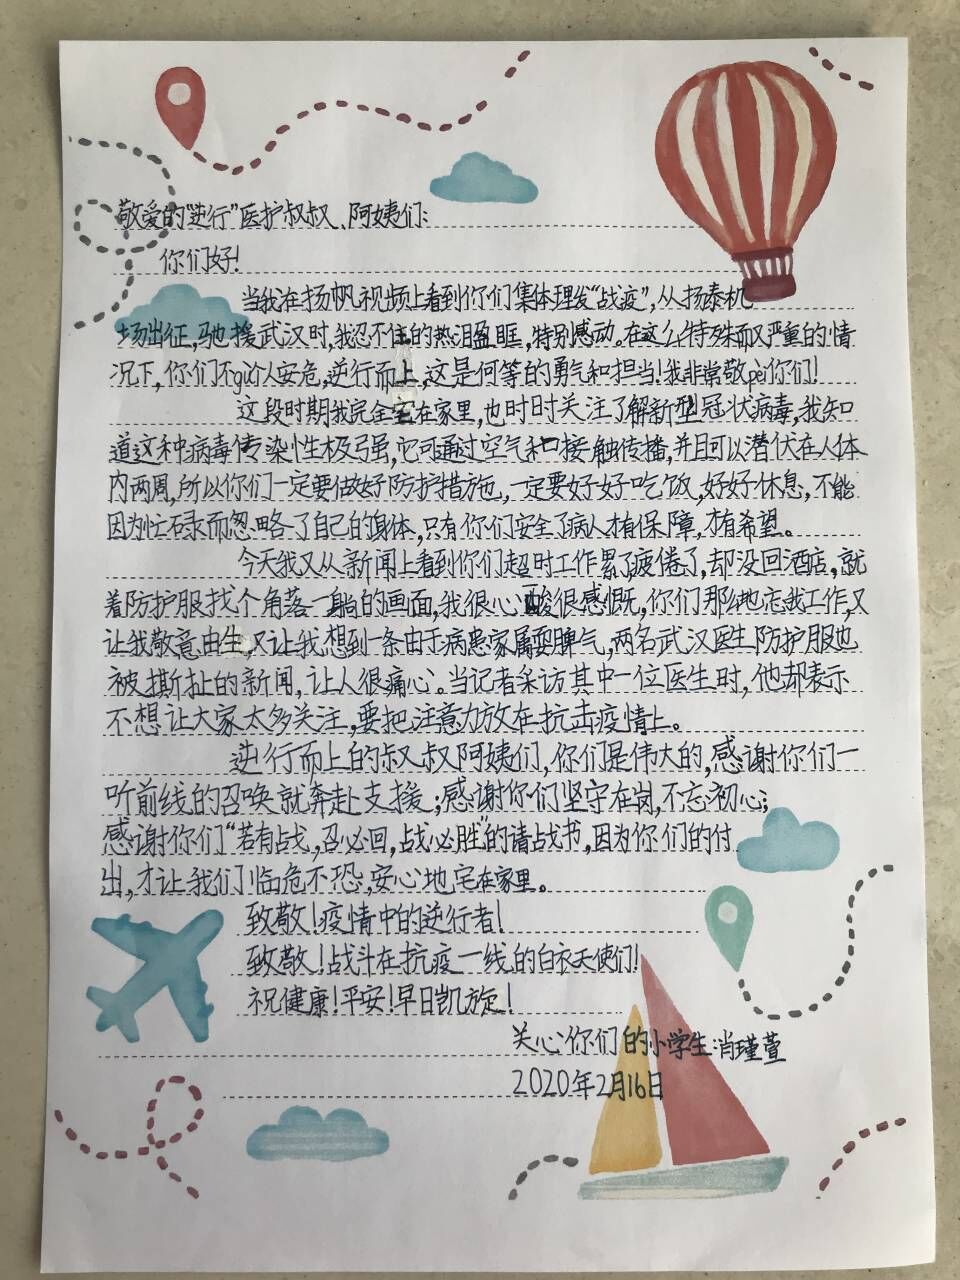 敬爱的“逆行”医护叔叔、阿姨们:
你们好!
当我在扬帆视频上看到你们集体理发“战疫”,从扬泰机
场出征,驰援武汉时,我忍不住的热泪盈眶,特别感动。在这么特殊而又严重的情
况下,你们不gù个人安危,逆行而上,这是何等的勇气和担当!我非常敬pèi你们!
这段时期我完全宅在家里,也时时关注了解新型冠状病毒,我知
道这种病毒传染性极强,它可通过空气和接触传播,并且可以潜伏在人体
内两周,所以你们一定要做好防护措施,一定要好好吃饭,好好休息,不能
因为忙碌而忽略了自己的身体,只有你们安全了病人才有保障,才有希望。
今天我又从新闻上看到你们超时工作累了疲倦了,却没回酒店,就
着防护服找个角落一躺的画面,我很心酸很感慨,你们那纯地忘我工作,又
让我敬意由生,又让我想到一条由于病患家属耍脾气,两名武汉医生防护服也
被撕扯的新闻,让人很痛心。当记者采访其中一位医生时,他却表示
不想让大家太多关注,要把注意力放在抗击疫情上。
逆行而上的叔叔阿姨们,你们是伟大的,感谢你们一
听前线的召唤就奔赴支援;感谢你们坚守在岗,不忘初心;
感谢你们“若有战,召必回,战必胜”的请战书,因为你们的付
出,才让我们临危不恐,安心地宅在家里。
致敬!疫情中的逆行者!
致敬!战斗在抗疫一线的白衣天使们!
祝健康!平安!早日凯旋!
关心你们的小学生:肖瑾萱
2020年2月16日